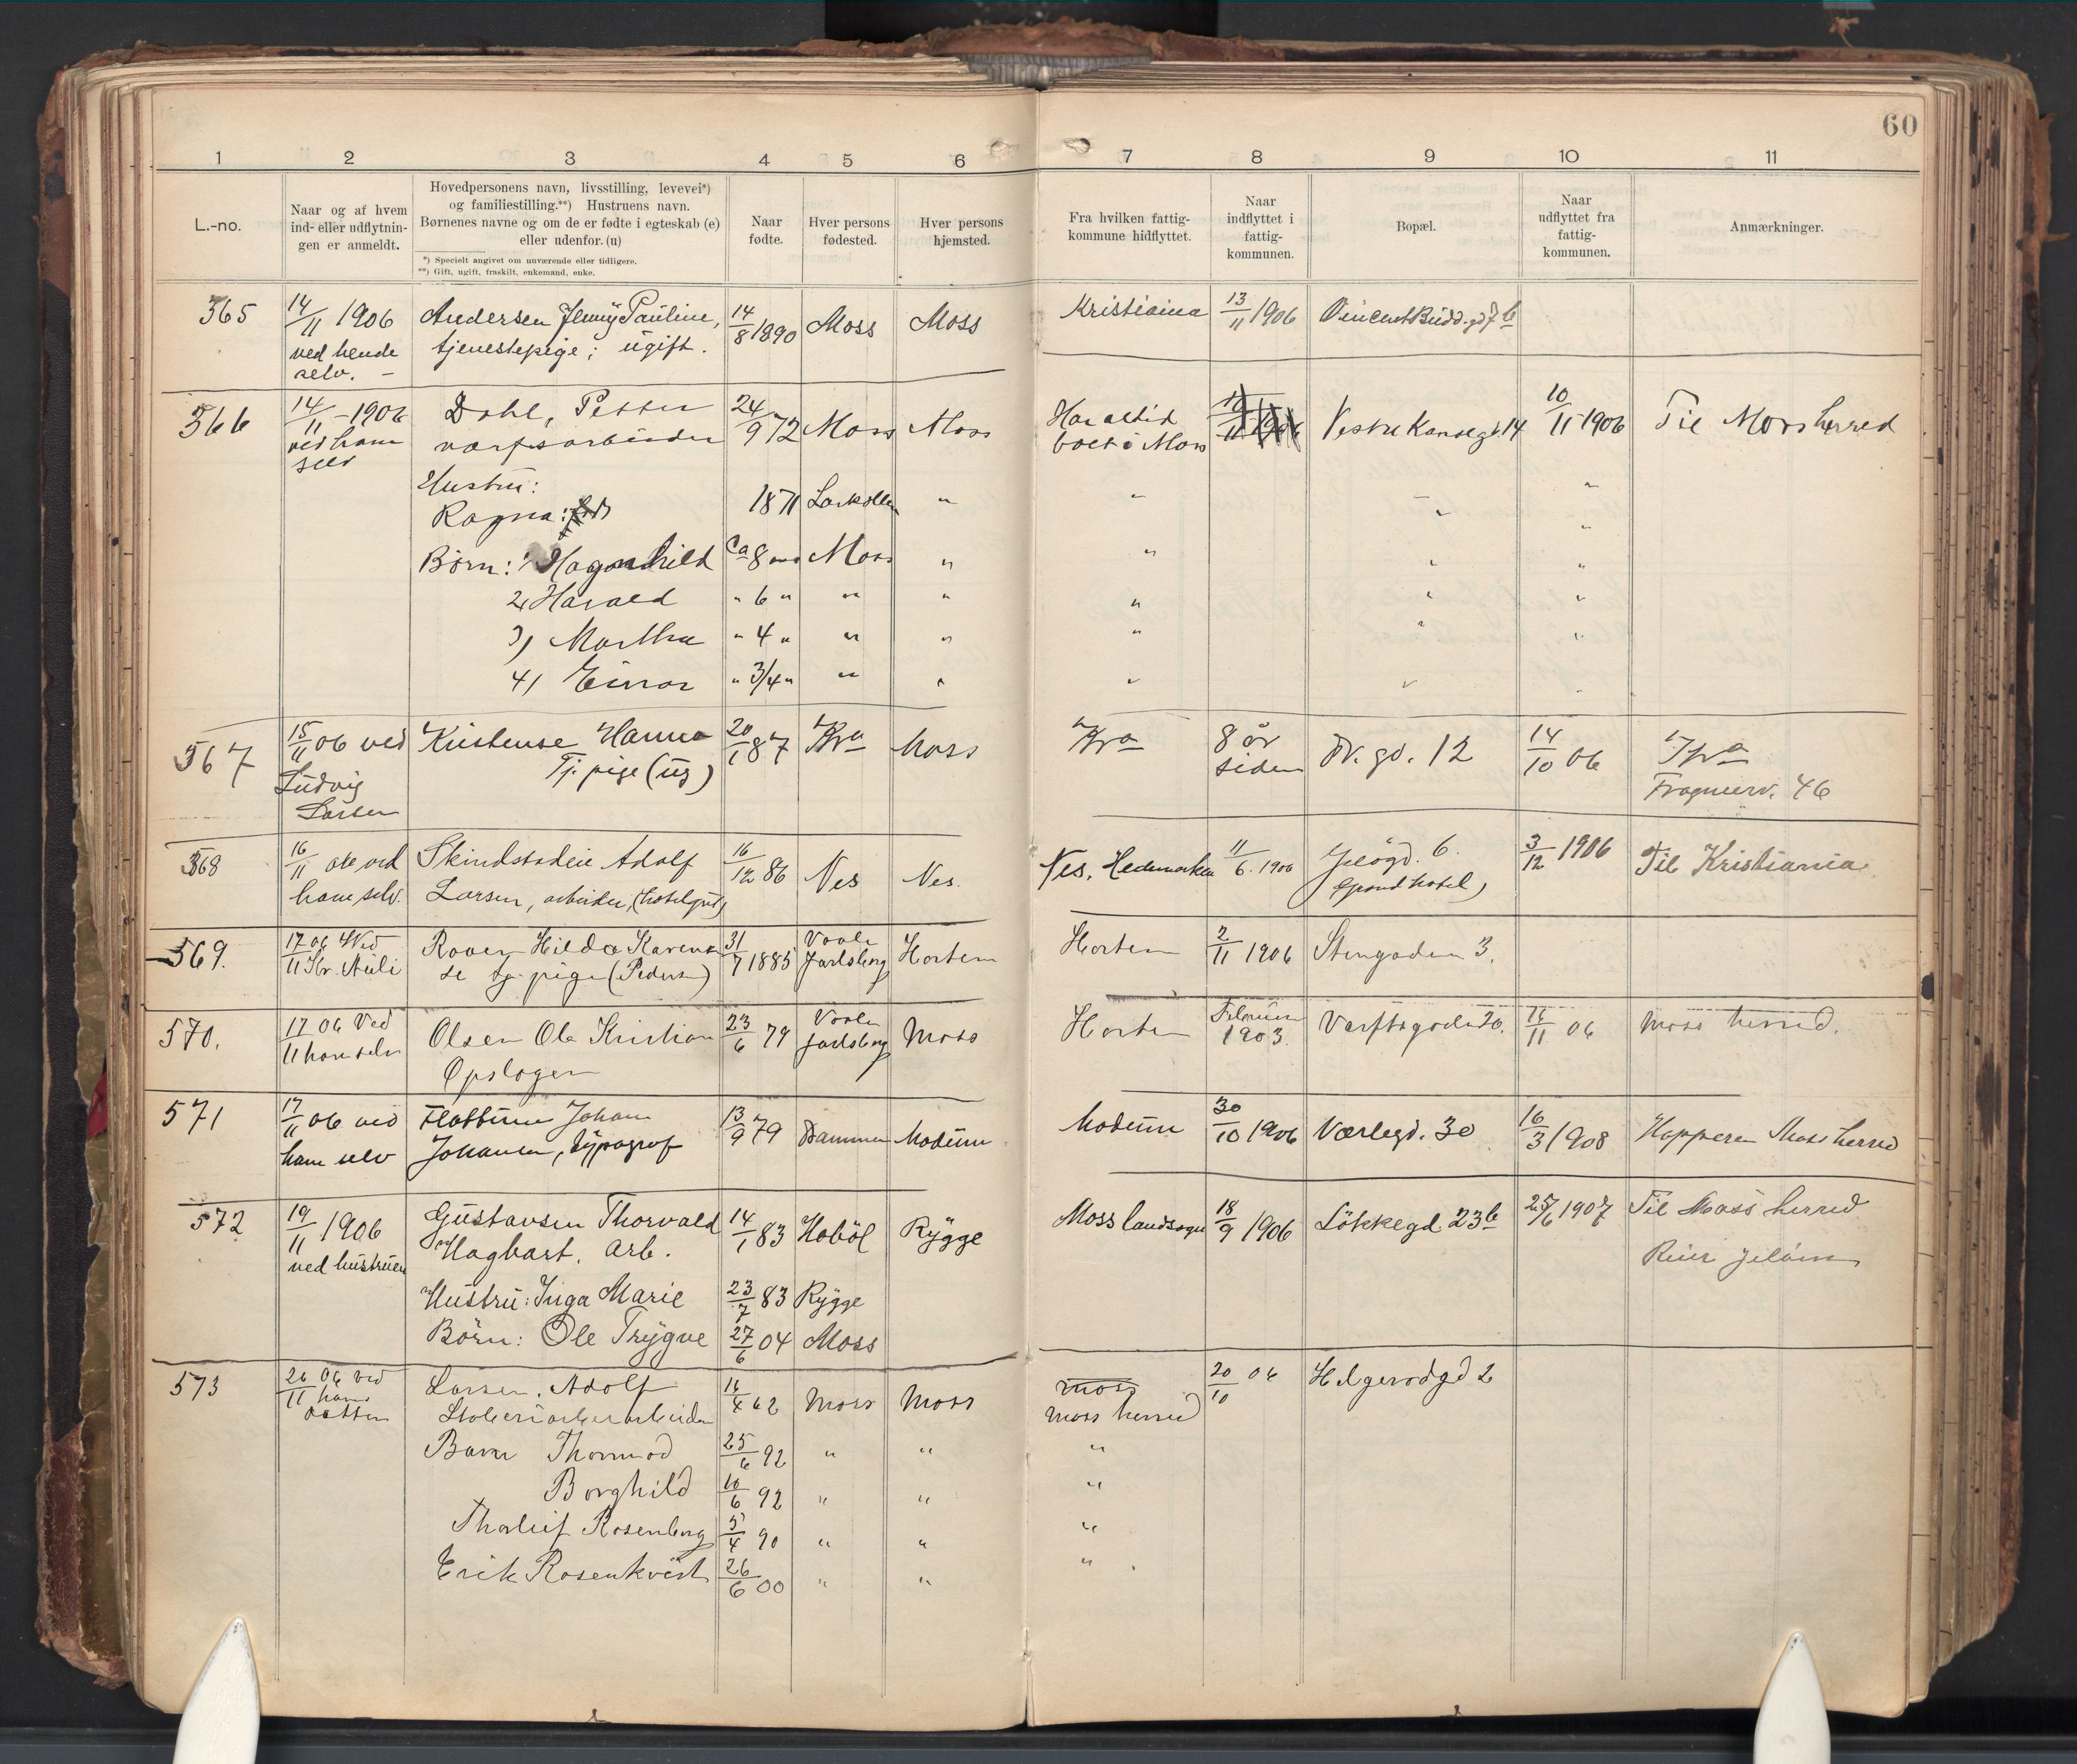 60
1 2 3 4 5 6 7 8 9 10 11
L.-no.
Naar og af hvem
ind- eller udflytnin-
gen er anmeldt.
Hovedpersonens navn, livsstilling, levevei*)
og familiestilling.**) Hustruens navn.
Børnenes navne og om de er fødte i egteskab (e)
eller udenfor. (u)
*) Specielt angivet om nuværende eller tidligere.
**) Gift, ugift, fraskilt, enkemand, enke.
Naar
fødte.
Hver persons
fødested.
Hver persons
hjemsted.
Fra hvilken fattig-
kommune hidflyttet.
Naar
indflyttet i
fattig-
kommunen.
Bopæl.
Naar
udflyttet fra
fattig-
kommunen.
Anmærkninger.
565 14/11 1906 Andersen Jenny Pauline, 14/8 1890 Moss Moss Kristiania 13/11 1906 Vincent Budd.gd 7 b
ved hende tjenestepige; ugift.
selv. –
566 14/11 – 1906 Dahl, Petter 24/9 72 Moss Moss Har altid Vestre Kanalgt. 14 10/11 1906 Til Moss herred
ved ham verfsarbeider boet i Moss
selv
Hustru:
Ragna: 1871 Larkollen " "
Børn: 1) Hagnhild Ca 8 Moss " "
2) Harald " 6 " " " "
3) Martha " 4 " " " "
4) Einar " 3/4 " " " "
567 15/11 06 ved Kristense Hanna 20/1 87 Kra Moss Kra 8 år Dr. gd. 12 14/10 06 Kra
Ludvig Tj. pige (ug) siden Frognerv. 46
Larsen
568 16/11 06 ved Skindstadeie Adolf 16/12 86 Nes Nes. Nes, Hedemarken 11/6 1906 Jeløgd. 6. 3/12 1906 Til Kristiania
ham selv. Larsen, arbeider, (hotelgut) Grand hotel)
569. 17/11 06 Ved Hilda 31/7 1885 Vaale Horten Horten 2/11 1906 Stengaden 3.
tj. pige (Pedersen) Jarlsberg
570. 17/11 06 Ved Olsen Ole Kristian 23/6 79 Vaale Moss Horten Februar Varftsgaden 20. 11 06 Moss herred.
ham selv Opslager Jarlsberg 1903.
571 17/11 06 ved Flattum Johan 13/9 79 Drammen Modum Modum 30/10 1906 Værlegd. 30 16/3 1908 Hopperen Moss herred
ham selv Johansen, typograf
572 19/11 1906 Gustavsen Thorvald 14/1 83 Hobøl Rygge Moss landsogn 18/9 1906 Løkkegd. 23 b 25/6 1907 Til Moss herred
ved hustruen Hagbart. Arb. Reier Jeløen
Hustru: Inga Marie 23/7 83 Rygge
Børn: Ole Trygve 27/6 04 Moss
573 20/11 06 ved Larsen, Adolf 16/4 62 Moss Moss Moss 20/10 06 Helgerødgd 2
hans Moss herred
datter
Barn Thormod 25/6 92 " " "
Borghild 10/6 92 " " "
Thorleif Rosenberg 5/4 90 " " "
Erik Rosenkvist 26/6 00 " " "